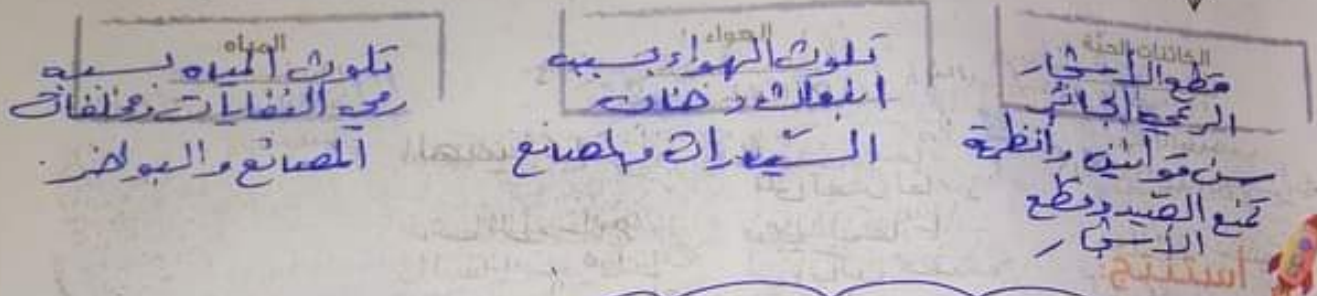 الكائنات الحية
قطع الأشجار
الرعي الجائر
سن قوانين وأنظمة
تمنع الصيد وقطع
الأشجار
الهواء
تلوث الهواء بسبب
انبعاث دخان
السيارات والمصانع
المياه
تلوث المياه بسبب
رمي النفايات ومخلفات
المصانع والبواخر.
أستنتج: